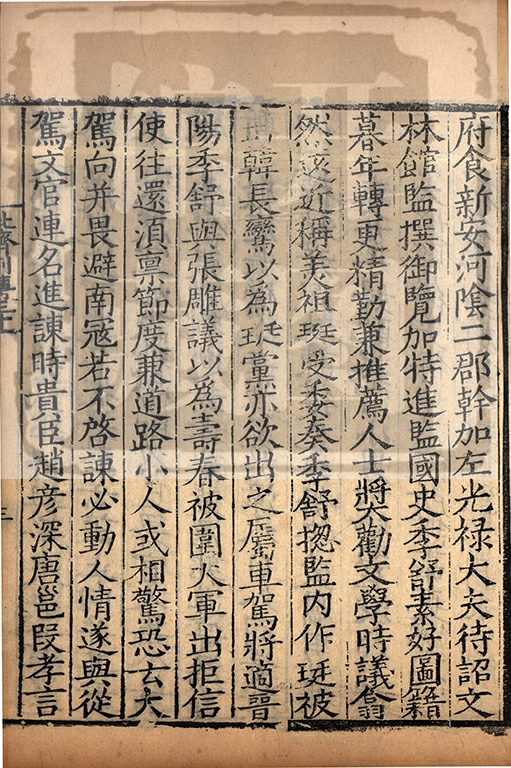 府食新安河陰二郡幹加左光祿大夫待詔文
林館監撰御覽加特進監國史季舒素好圖籍
暮年轉更精勤兼推薦人士奬勸文學時議翕
然遠近稱美祖珽受委奏季舒揔監內作珽被
韓長鸞以為珽黨亦欲出之屬車駕將適晋
陽季舒與張雕議以為壽春被圍大軍出拒信
使往還湏禀節度兼道路小人或相驚恐云大
駕向并畏避南冦若不啓諫必動人情遂與從
駕文官連名進諫時貴臣趙彥深唐邕段孝言
三